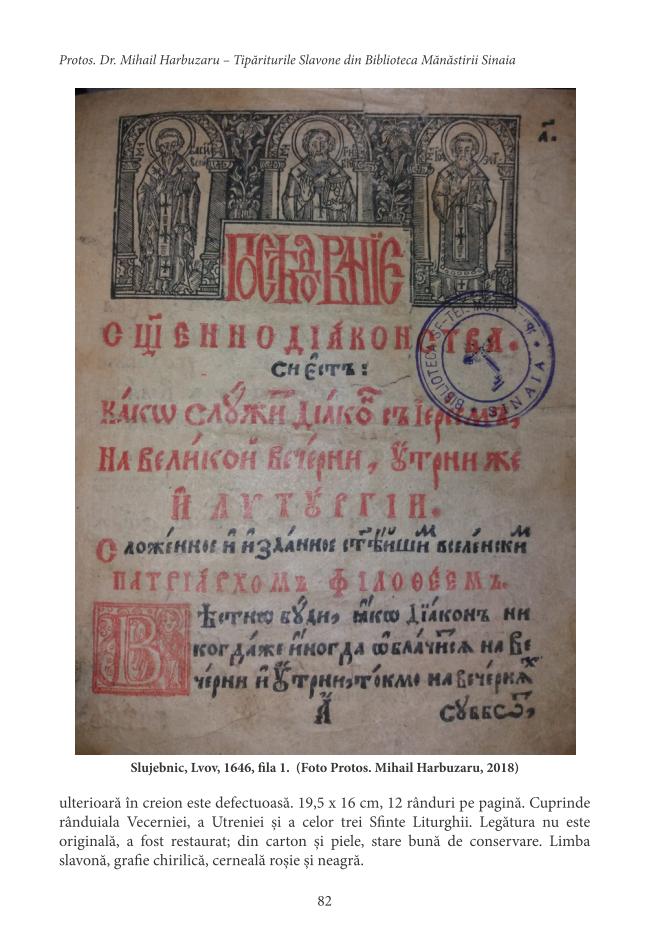 Protos. Dr. Mihail Harbuzaru – Tipăriturile Slavone din Biblioteca Mănăstirii Sinaia
҃а.
СЩ҃ЕННОДІА́КОНСТВА.
СИ Е҆СТЪ :
КА́КѠ СЛꙊЖИ́Т ДІА́КО съ Іере́емъ,
НА ВЕЛИ́КОЙ ВЕЧЕ́РНИ, ꙊТРНИ ЖЕ
И҆ ЛУТꙊРГІИ.
Сложе́нное и҆ и҆зда́нное ст҃ѣйши вселе́нски
ПАТРІА́РХОМЪ ФІЛОѲЕ́ЕМЪ.
Вѣстно бꙋди, ꙗ҆́кѡ Діаконъ ни
когда́же и҆ногда ѡ҆блачи́тсѧ на Ве
че́рни и҆ Ꙋтрни, то́кмо на Вече́рнѧ
А҆
сꙋббѡ,
BIBLIOTECA SF-TEI MON
SINAIA
Slujebnic, Lvov, 1646, fila 1. (Foto Protos. Mihail Harbuzaru, 2018)
ulterioară în creion este defectuoasă. 19,5 x 16 cm, 12 rânduri pe pagină. Cuprinde
rânduiala Vecerniei, a Utreniei și a celor trei Sfinte Liturghii. Legătura nu este
originală, a fost restaurat; din carton și piele, stare bună de conservare. Limba
slavonă, grafie chirilică, cerneală roșie și neagră.
82